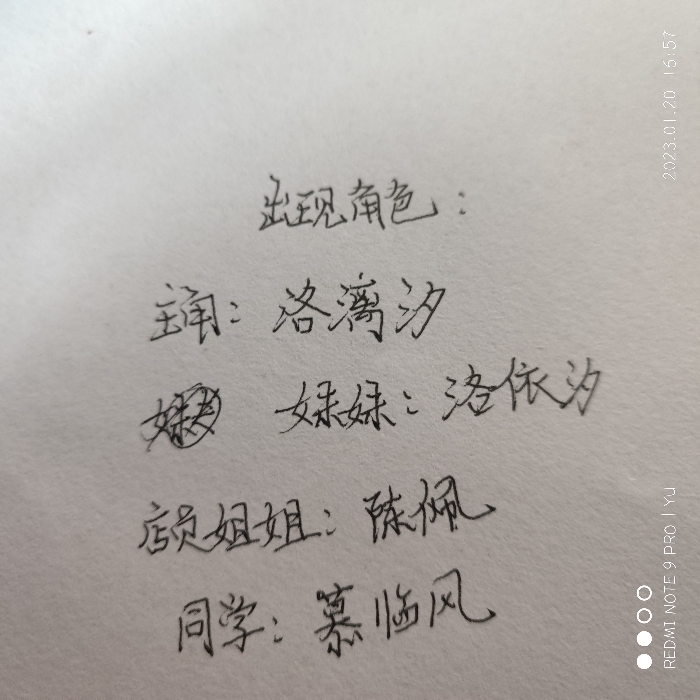 出现角色：
主角：洛漓汐
妹妹：洛依汐
店员姐姐：陈佩
同学：慕临风
2023.01.20 16:57
REDMI NOTE 9 PRO | YU